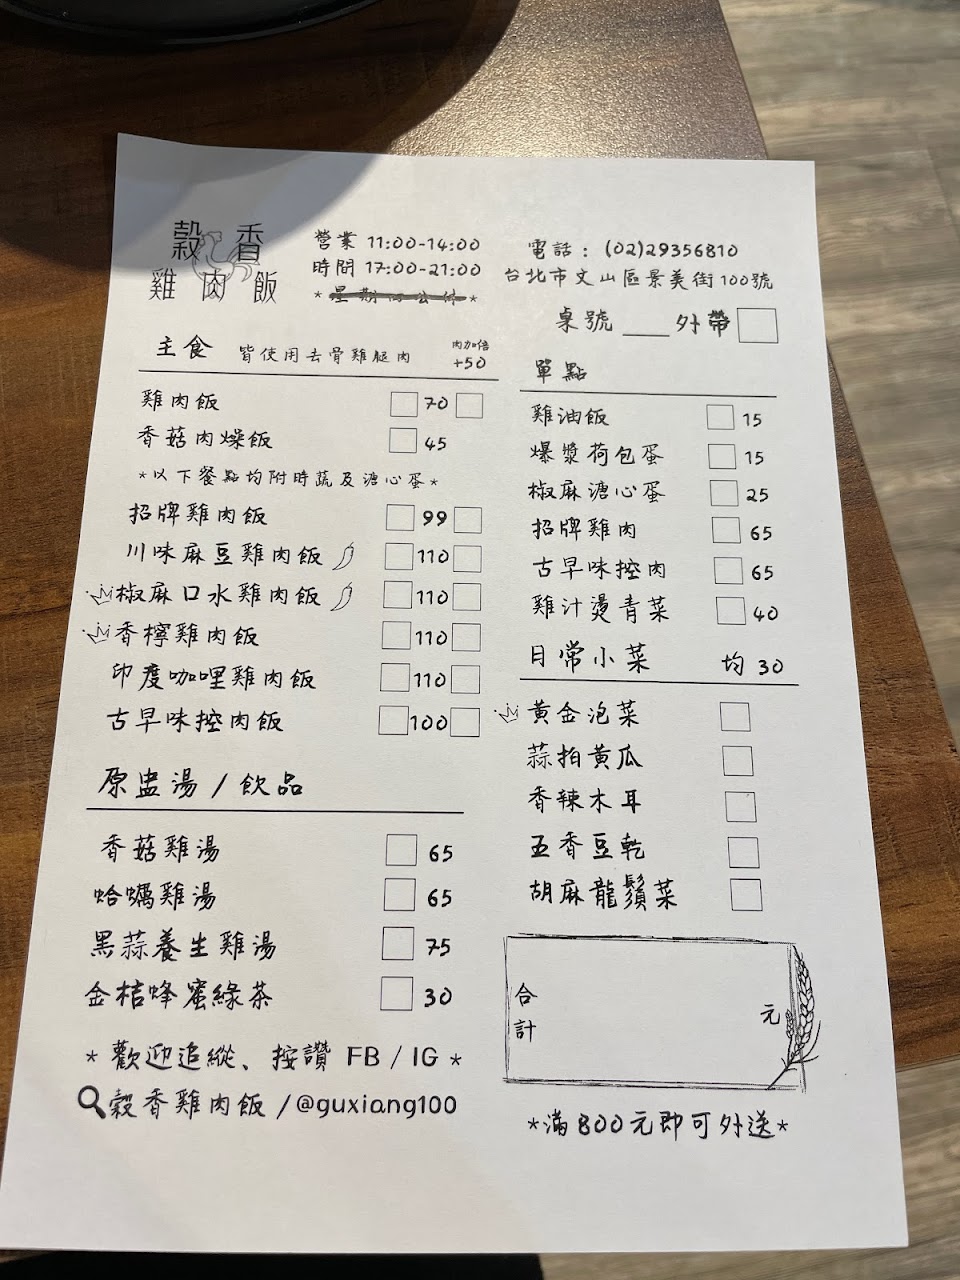 穀香
雞肉飯
營業 11:00-14:00
時間 17:00-21:00
電話：(02)29356810
台北市文山區景美街100號
桌號 ___ 外帶
主食 皆使用去骨雞腿肉 肉加倍 +50
雞肉飯 70
香菇肉燥飯 45
*以下餐點均附時蔬及溏心蛋*
招牌雞肉飯 99
川味麻豆雞肉飯 110
椒麻口水雞肉飯 110
香檸雞肉飯 110
印度咖哩雞肉飯 110
古早味控肉飯 100
原盅湯/飲品
香菇雞湯 65
蛤蠣雞湯 65
黑蒜養生雞湯 75
金桔蜂蜜綠茶 30
*歡迎追縱、按讚 FB/IG*
穀香雞肉飯/@guxiang100
單點
雞油飯 15
爆漿荷包蛋 15
椒麻溏心蛋 25
招牌雞肉 65
古早味控肉 65
雞汁燙青菜 40
日常小菜 均30
黃金泡菜
蒜拍黃瓜
香辣木耳
五香豆乾
胡麻龍鬚菜
合計 元
*滿800元即可外送*